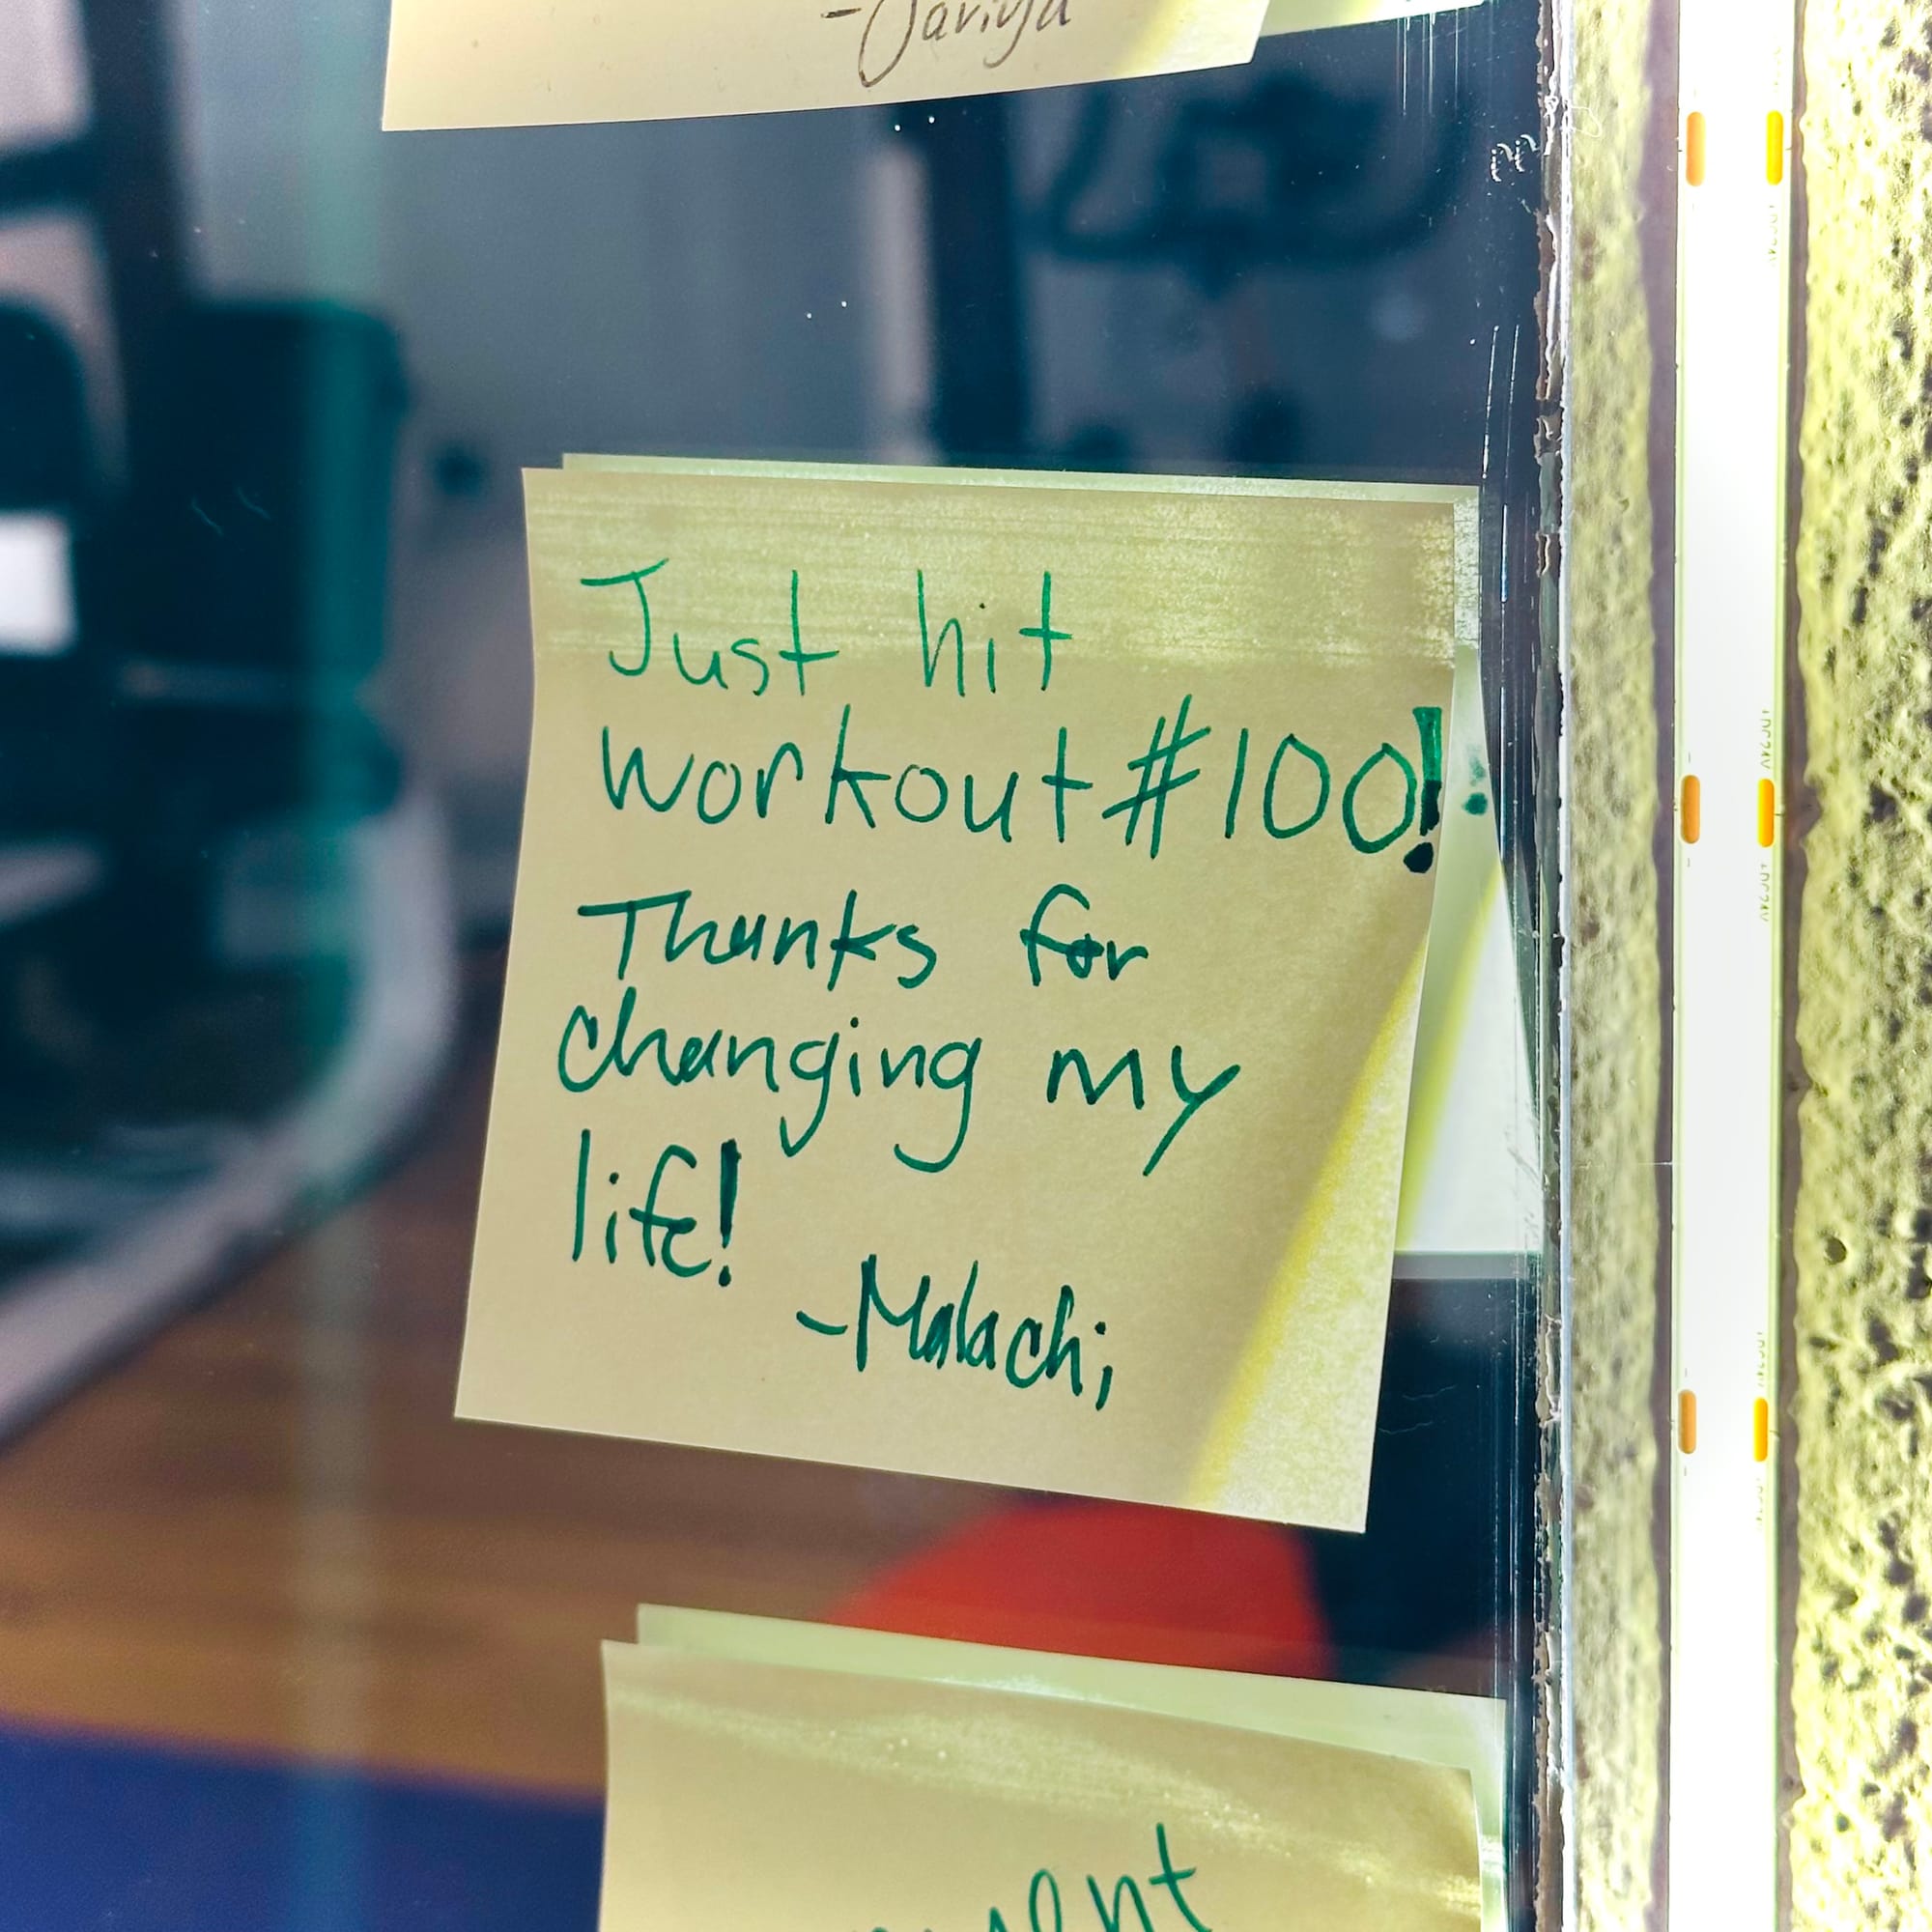 Just hit
workout #100!
Thanks for
changing my
life!
-Malachi